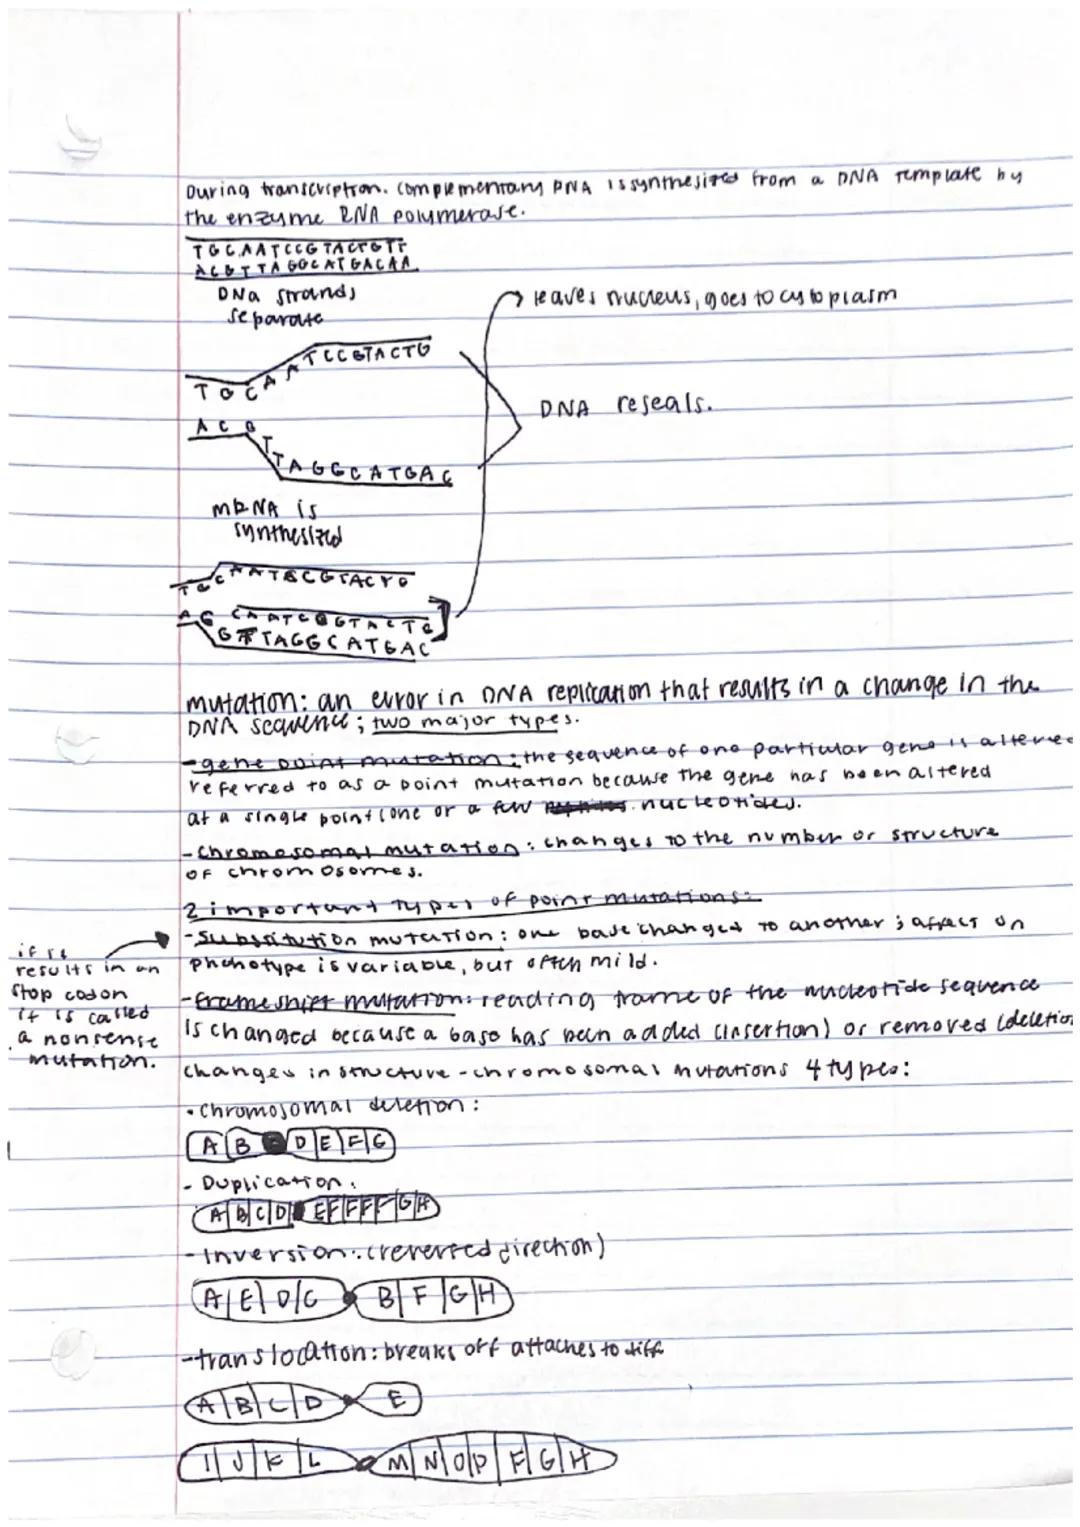 During transcription. complementary DNA is synthesized from a DNA template by
the enzyme RNA polymerase.
TGCAATCCGTACTGTT
ACGTTAGGCATGACAA
DNA strands
separate
leaves nucleus, goes to cytoplasm
TGCAATCCGTACTG
DNA reseals.
ACGTTAGGCATGAC
mRNA is
synthesized
CAATCGGTACTG
GTTAGGCATGAC
mutation: an error in DNA replication that results in a change in the
DNA sequence; two major types.
- gene point mutation: the sequence of one particular gene is altered
referred to as a point mutation because the gene has been altered
at a single point (one or a few nucleotides.
- Chromosomal mutation: changes to the number or structure
of chromosomes.
2 important types of point mutations:
- Substitution mutation: one base changed to another; affect on
phenotype is variable, but often mild.
if
results in an
stop codon
it is called
a nonsense
mutation.
- frameshift mutation: reading frame of the nucleotide sequence
is changed because a base has been added (insertion) or removed (deletion
changes in structure - chromosomal mutations 4 types:
• Chromosomal deletion:
A B D E F G
- Duplication:
A B C D E F F F F G H
- Inversion: (reversed direction)
A E D C B F G H
- translocation: breaks off attaches to diff
A B C D E
I J K L M N O P F G H